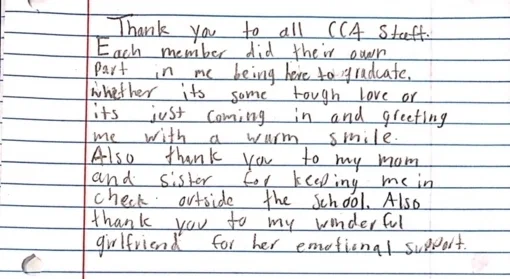 Thank you to all CCA Staff.
Each member did their own
part in me being here to graduate.
whether its some tough love or
its just coming in and greeting
me with a warm smile.
Also thank you to my mom
and sister for keeping me in
check. outside the school. Also
thank you to my wonderful
girlfriend for her emotional support.